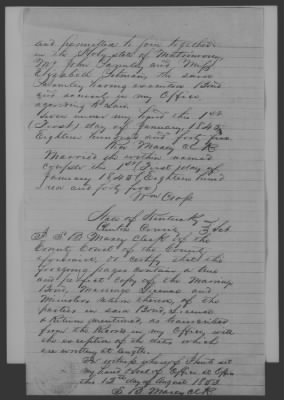 and permitted to join together
in the Holy state of Matrimony
Mr John and Miss
Elizabeth the said
having executed Bond
and security in my Office
agreeing to Law
Given under my hand the 1st
(First) day of January 1845
Eighteen hundred and forty five
Wm Maxey Clk
Married the within named
couple the 1st (First) day of
January 1845 (Eighteen hund
dred and forty five)
Wm Cross
State of Kentucky
Clinton County } Sct
I B Maxey Clerk of the
County Court of the County
aforesaid do certify that the
foregoing pages contain a true
and perfect copy of the Marriage
Bond, Marriage License and
Ministers return thereon, of the
parties in said Bond, License
& Return mentioned, as transcribed
from the Records in my Office, with
the exception of the dates which
are written at length.
In witness whereof I have set
my hand & seal of Office at Office
this 12th day of August 1853
B Maxey Clk